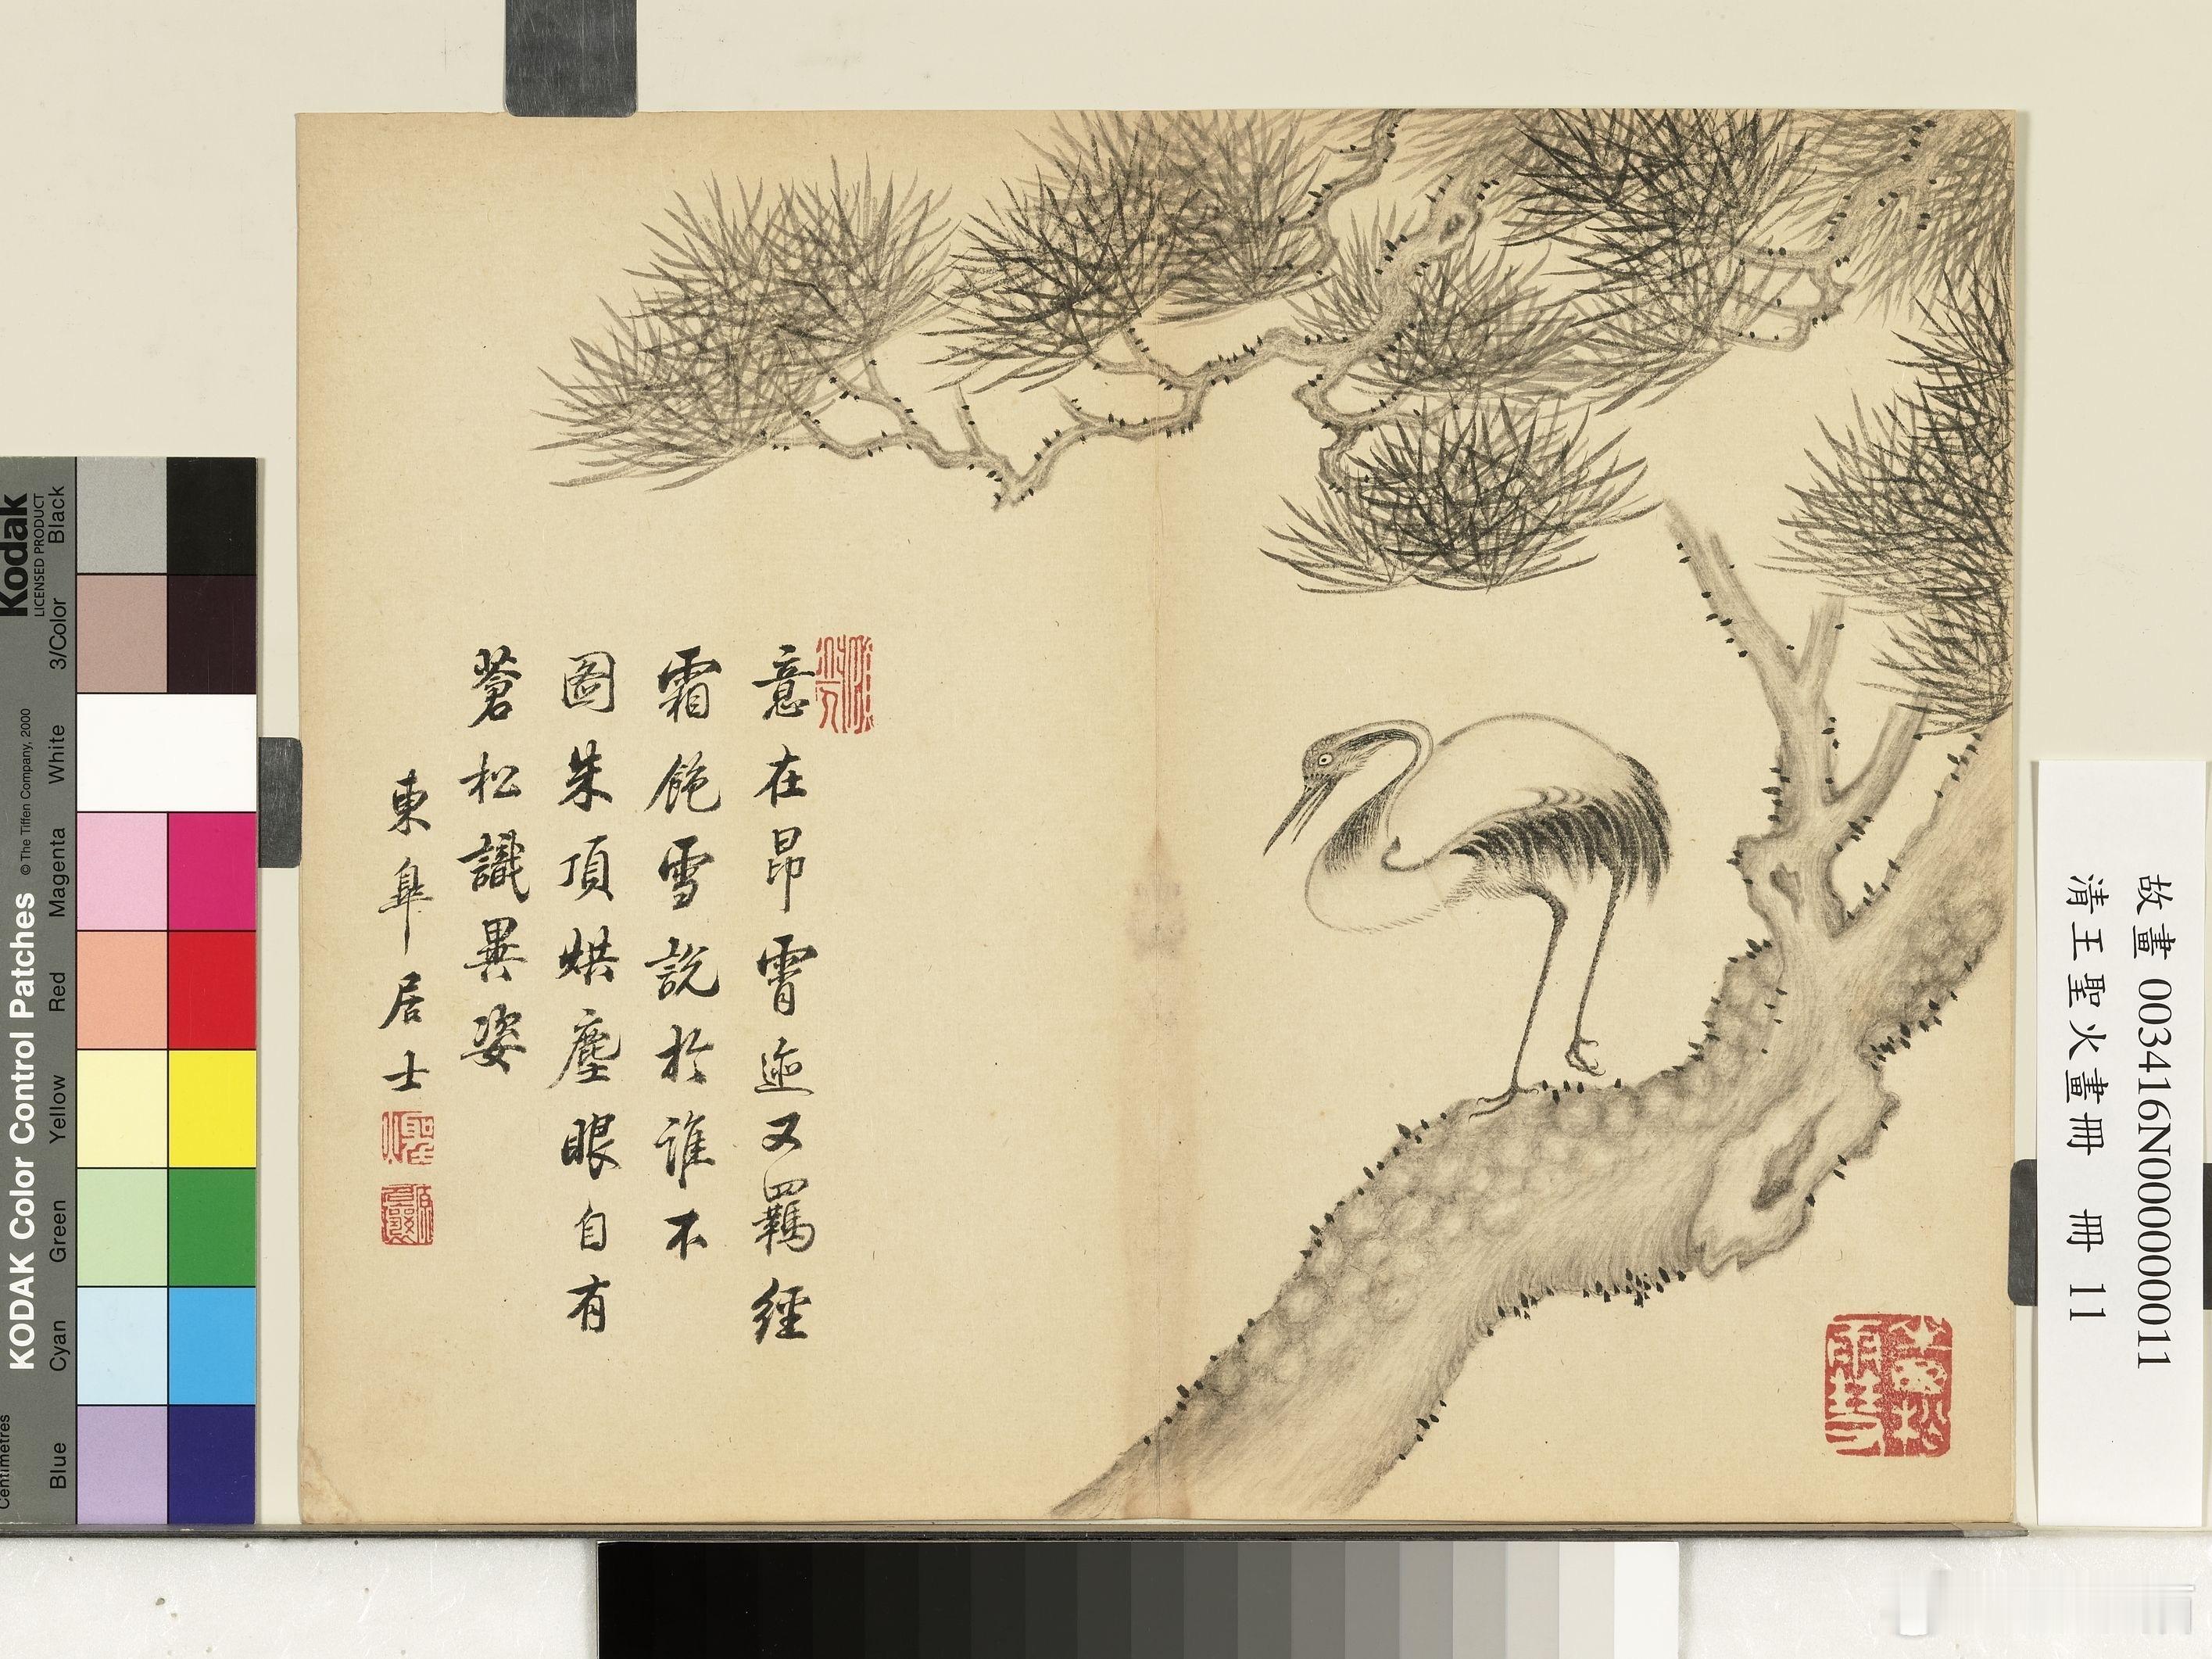 意在昂霄迹又羈經
霜飽雪說於誰不
圖朱頂烘塵眼自有
蒼松識異姿
東皐居士
故畫 003416N000000011
清王聖火畫冊 冊 11
KODAK Color Control Patches
Kodak
LICENSED PRODUCT
© The Tiffen Company, 2000
Centimetres
Blue
Cyan
Green
Yellow
Red
Magenta
White
3/Color
Black